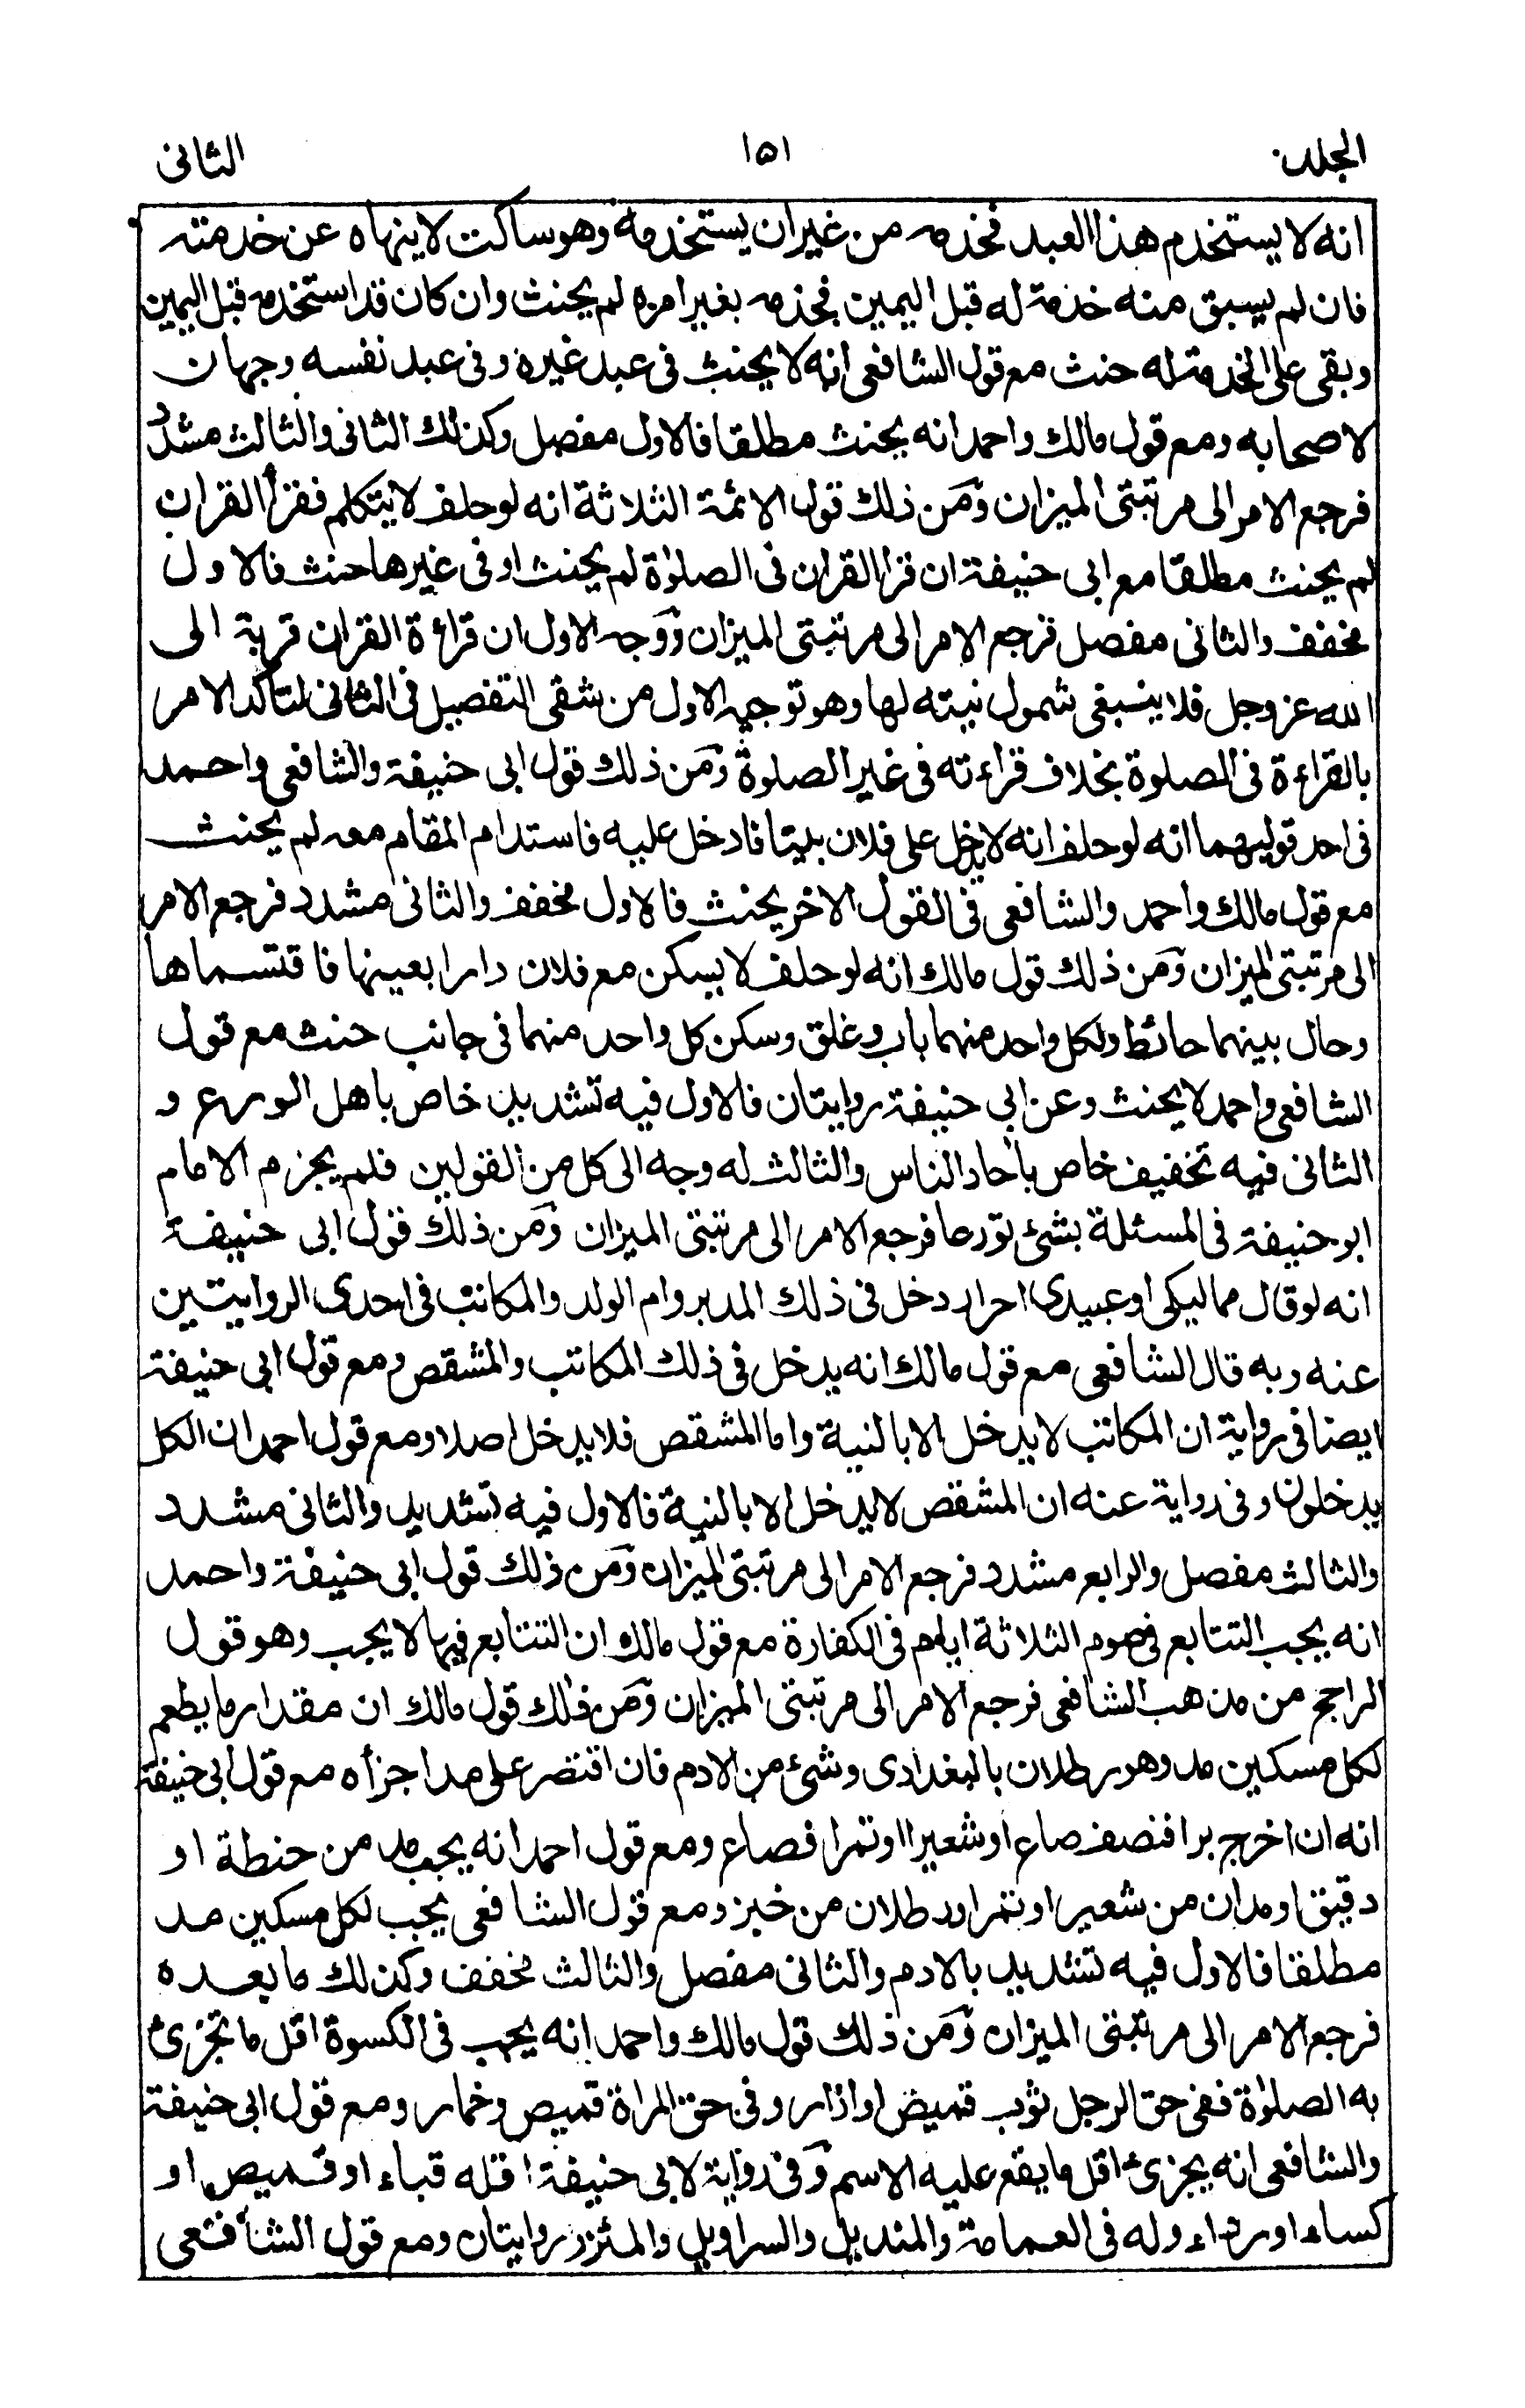 المجلد ١٥١ الثانى
انه لا يستخدم هذا العبد فخدمه من غيران يستخدمه وهو ساكت لا ينهاه عن خدمته
فان لم يسبق منه خدمة له قبل اليمين فخدمه بغير امره لم يحنث وان كان قد استخدمه قبل اليمين
وبقى على الخدمة له حنث مع قول الشافعى انه لا يحنث فى عبد غيره وفى عبد نفسه وجهان
لاصحابه ومع قول مالك واحمد انه يحنث مطلقا فالاول مفصل وكذلك الثانى والثالث مشدد
فرجع الامر الى مرتبتى الميزان ومن ذلك قول الائمة الثلاثة انه لو حلف لا يتكلم فقرأ القران
لم يحنث مطلقا مع ابى حنيفة ان قرا القران فى الصلوٰة لم يحنث او فى غيرها حنث فالاول
مخفف والثانى مفصل فرجع الامر الى مرتبتى الميزان ووجه الاول ان قراءة القران قربة الى
الله عز وجل فلا ينبغى شمول نيته لها وهو توجيه الاول من شقى التفصيل فى الثانى لتاكد الامر
بالقراءة فى الصلوة بخلاف قراءته فى غير الصلوة ومن ذلك قول ابى حنيفة والشافعى واحمد
فى احد قوليهما انه لو حلف انه لا يدخل على فلان بيتا فادخل عليه فاستدام المقام معه لم يحنث
مع قول مالك واحمد والشافعى فى القول الاخر يحنث فالاول مخفف والثانى مشدد فرجع الامر
الى مرتبتى الميزان ومن ذلك قول مالك انه لو حلف لا يسكن مع فلان دارا بعينها فاقتسماها
وحال بينهما حائط ولكل واحد منهما باب وغلق وسكن كل واحد منهما فى جانب حنث مع قول
الشافعى واحمد لا يحنث وعن ابى حنيفة روايتان فالاول فيه تشديد خاص باهل الورع و
الثانى فيه تخفيف خاص بآحاد الناس والثالث له وجه الى كل من القولين فلم يجزم الامام
ابو حنيفة فى المسئلة بشئ تورعا فرجع الامر الى مرتبتى الميزان ومن ذلك قول ابى حنيفة
انه لو قال مماليكى او عبيدى احرار دخل فى ذلك المدبر وام الولد والمكاتب فى احدى الروايتين
عنه وبه قال الشافعى مع قول مالك انه يدخل فى ذلك المكاتب والمشقص ومع قول ابى حنيفة
ايضا فى رواية ان المكاتب لا يدخل الا بالنية واما المشقص فلا يدخل اصلا ومع قول احمد ان الكل
يدخلون وفى رواية عنه ان المشقص لا يدخل الا بالنية فالاول فيه تشديد والثانى مشدد
والثالث مفصل والرابع مشدد فرجع الامر الى مرتبتى الميزان ومن ذلك قول ابى حنيفة واحمد
انه يجب التتابع فى صوم الثلاثة ايام فى الكفارة مع قول مالك ان التتابع فيها لا يجب وهو قول
الراجح من مذهب الشافعى فرجع الامر الى مرتبتى الميزان ومن ذلك قول مالك ان مقدار ما يطعم
لكل مسكين مد وهو رطلان بالبغدادى وشئ من الادم فان اقتصر على مد اجزأه مع قول ابى حنيفة
انه ان اخرج برا فنصف صاع او شعيرا او تمرا فصاع ومع قول احمد انه يجب مد من حنطة او
دقيق او مدان من شعير او تمر او رطلان من خبز ومع قول الشافعى يجب لكل مسكين مد
مطلقا فالاول فيه تشديد بالادم والثانى مفصل والثالث مخفف وكذلك ما بعده
فرجع الامر الى مرتبتى الميزان ومن ذلك قول مالك واحمد انه يجب فى الكسوة اقل ما تجزئ
به الصلوٰة ففى حق الرجل ثوب قميض او ازار وفى حق المراة قميص وخمار ومع قول ابى حنيفة
والشافعى انه يجزئ اقل ما يقع عليه الاسم وفى رواية لابى حنيفة اقله قباء او قميص او
كساء او رداء وله فى العمامة والمنديل والسراويل والمئزر روايتان ومع قول الشافعى